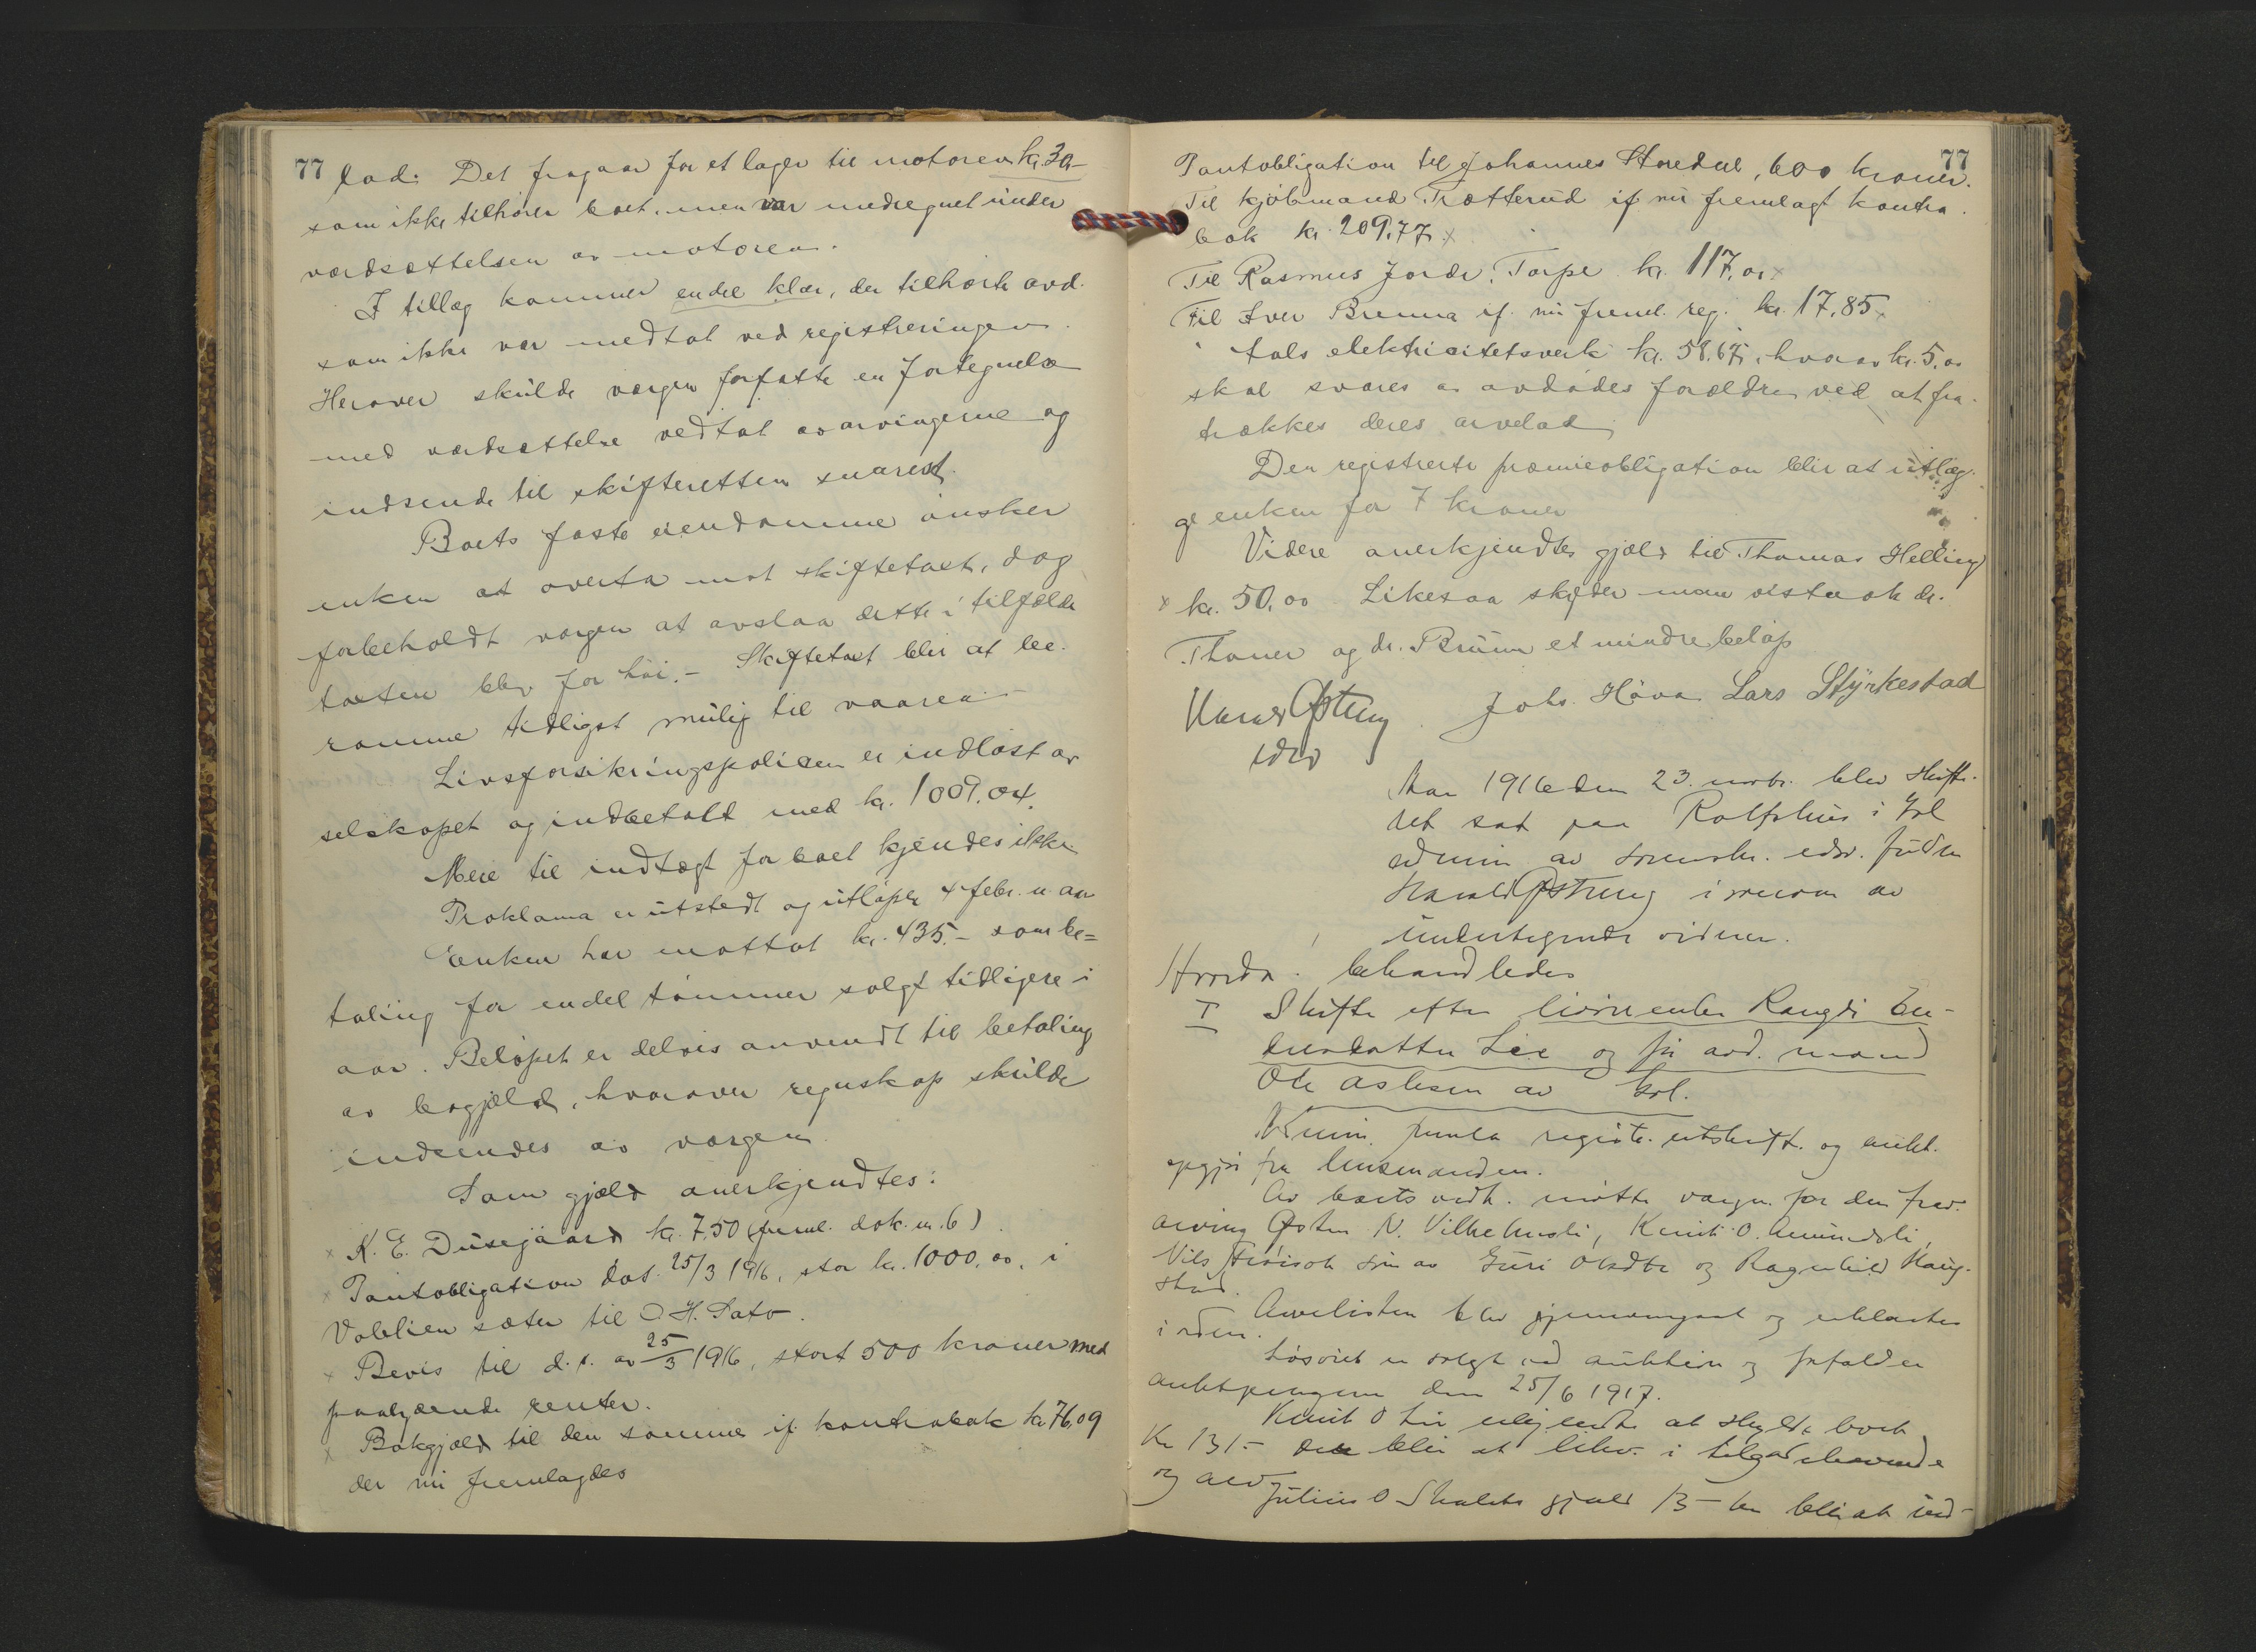 77 lod. Det fragaar for et lager til motoren kr. 30,-
som ikke tilhører boet, men var medregnet under
værdsættelsen av motoren.
I tillæg kommer endel klær, der tilhørte avd.
som ikke var medtat ved registreringen.
Herover skulde vergen forfatte en fortegnelse
med værdsættelse vedtat av arvingerne og
indsende til skifteretten snarest.
Boets faste eiendomme ønsker
enken at overta mot skiftetakst, dog
forbeholdt vergen at avslaa dette i tilfælde
taksten blev for høi. - Skiftetakst blir at be-
ramme tidligst mulig til vaaren
Livsforsikringspolicen er indløst av
selskapet og indbetalt med kr. 1009,04.
Mere til indtægt for boet kjendes ikke
Proklama er utstedt og utløper 4 febr. n. aar
Enken har mottat kr. 435.- som be=
taling for endel tømmer solgt tidligere i
aar. Beløpet er delvis anvendt til betaling
av bogjæld, hvorover regnskap skulde
indsendes av vergen.
Som gjæld anerkjendtes:
x K. E. Dusegaard kr. 7,50 (freml. dok. nr. 6)
x Pantobligation dat. 25/3 1916, stor kr. 1000,00, i
Vablien sæter til O H. Sato.
x Bevis til d. s. av 25/3 1916, stort 500 kroner med
paaløpende renter.
x Bokgjæld til den samme if. kontrabok kr. 76,09
der nu fremlagdes
77
Pantobligation til Johannes Storedal, 600 kroner.
Til kjøbmand Trætterud if. nu fremlagt kontra-
bok kr. 209,77. x
Til Rasmus Jorde, Torpe kr. 117,00 x
Til Iver Brenna if. nu freml. reg. kr. 17,85 x
Aals elektricitetsverk kr. 58,67, hvorav kr. 5,00
skal svares av avdødes forældre ved at fra-
trækkes deres arvelod
Den registrerte præmieobligation blir at utlæg-
ge enken for 7 kroner
Videre anerkjendtes gjæld til Thomas Helling
x kr. 50,00 Likesaa skylder man vistnok dr.
Thoner og dr. Bruun et mindre beløp
Harald Østeng Johs. Høva Lars Styrkestad
edsv
Aar 1916 den 23. novbr. blev skifte-
ret sat paa Rolfshus i Gol
admin. av sorenskr. edsv. fuldm
Harald Østeng i nærvær av
undertegnede vidner.
Hvorda behandledes
I Skifte efter livøienke Rangdi En-
dresdatter Lie og før avd. mand
Ole Aslesen av Gol.
Admin. freml. registr. utskrift. og aukt.
opgjør fra lensmanden.
Av boets vedk. møtte vergen for den frav.
arving Østen N. Vilhelmsli, Knut O. Amundsli,
Nils søn av Guri Olsdtr og Ragnhild Haug-
stad.
Arvelisten blev gjennemgaat og erklærtes
i orden.
Løsøret er solgt ved auktion og forfalder
auktpengene den 25/6 1917.
Knut O Lie erkjendte at skylde boet
Kr 131.- der blir at behv. i tilgodehavende
og arv
Julius O Skulets gjæld 13- kr blir at ind-